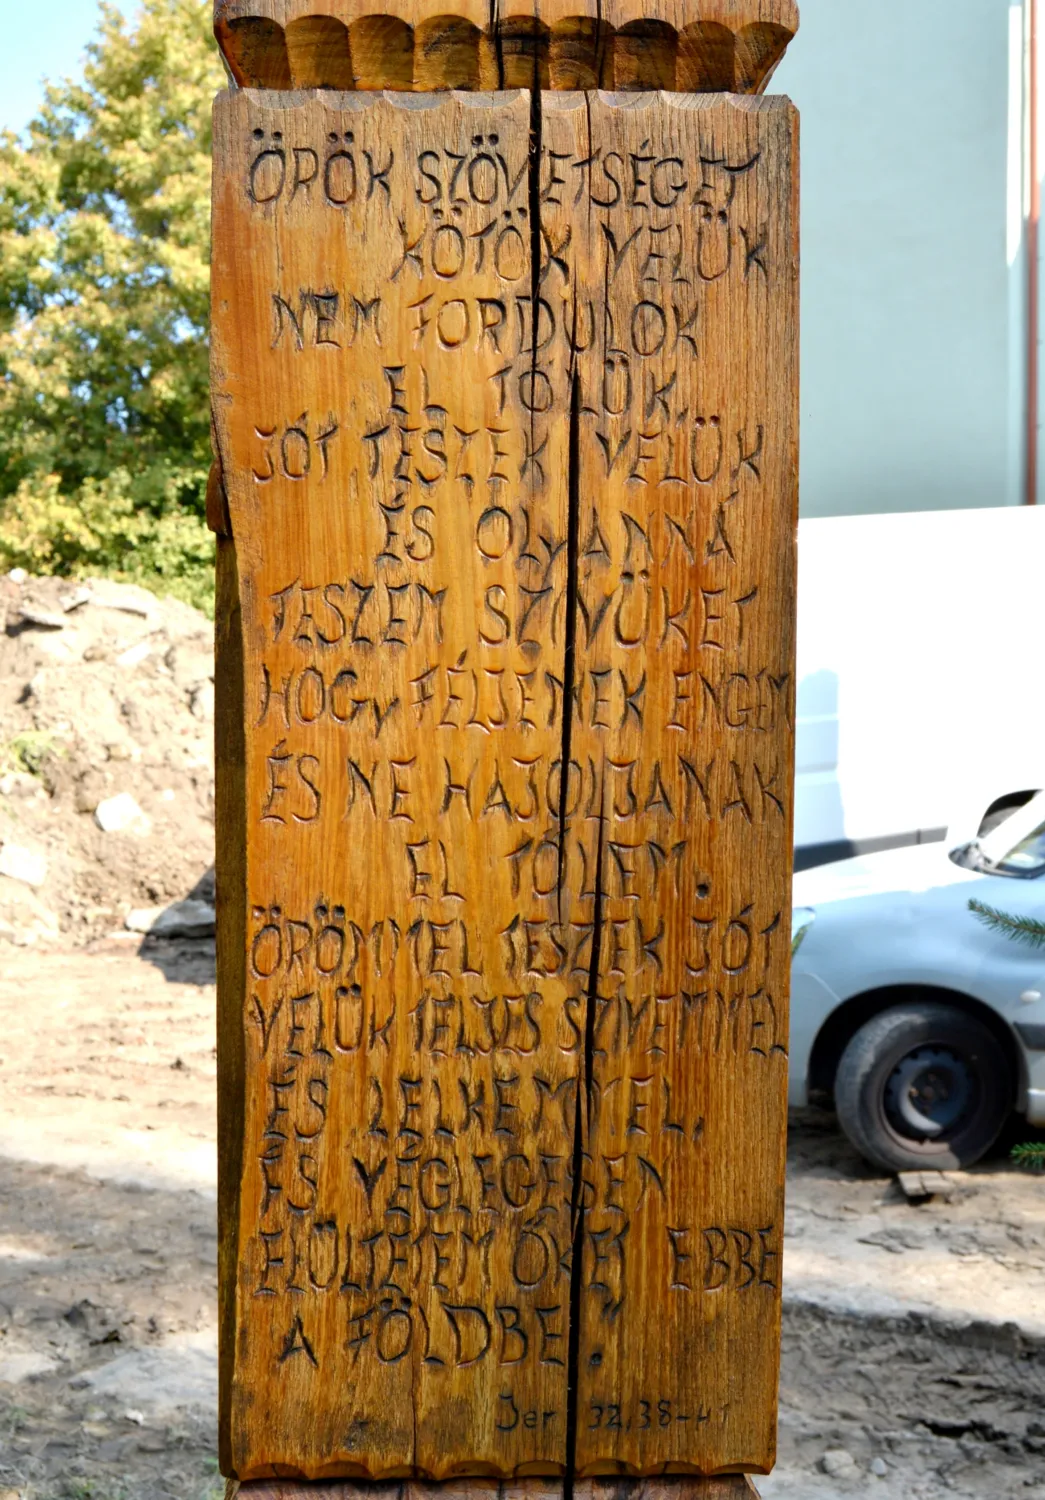 ÖRÖK SZÖVETSÉGET
KÖTÖK VELÜK
NEM FORDULOK
EL TŐLÜK,
JÓT TESZEK VELÜK
ÉS OLyANNÁ
TESZEM SZIVÜKET
HOGy FÉLJENEK ENGEM
ÉS NE HAJOLJANAK
EL TŐLEM.
ÖRÖMMEL TESZEK JÓT
VELÜK TELJES SZIVEMMEL
ÉS LELKEMMEL,
ÉS VÉGLEGESEN
ELÜLTETEM ŐKET EBBE
A FÖLDBE."
Jer 32,38-41